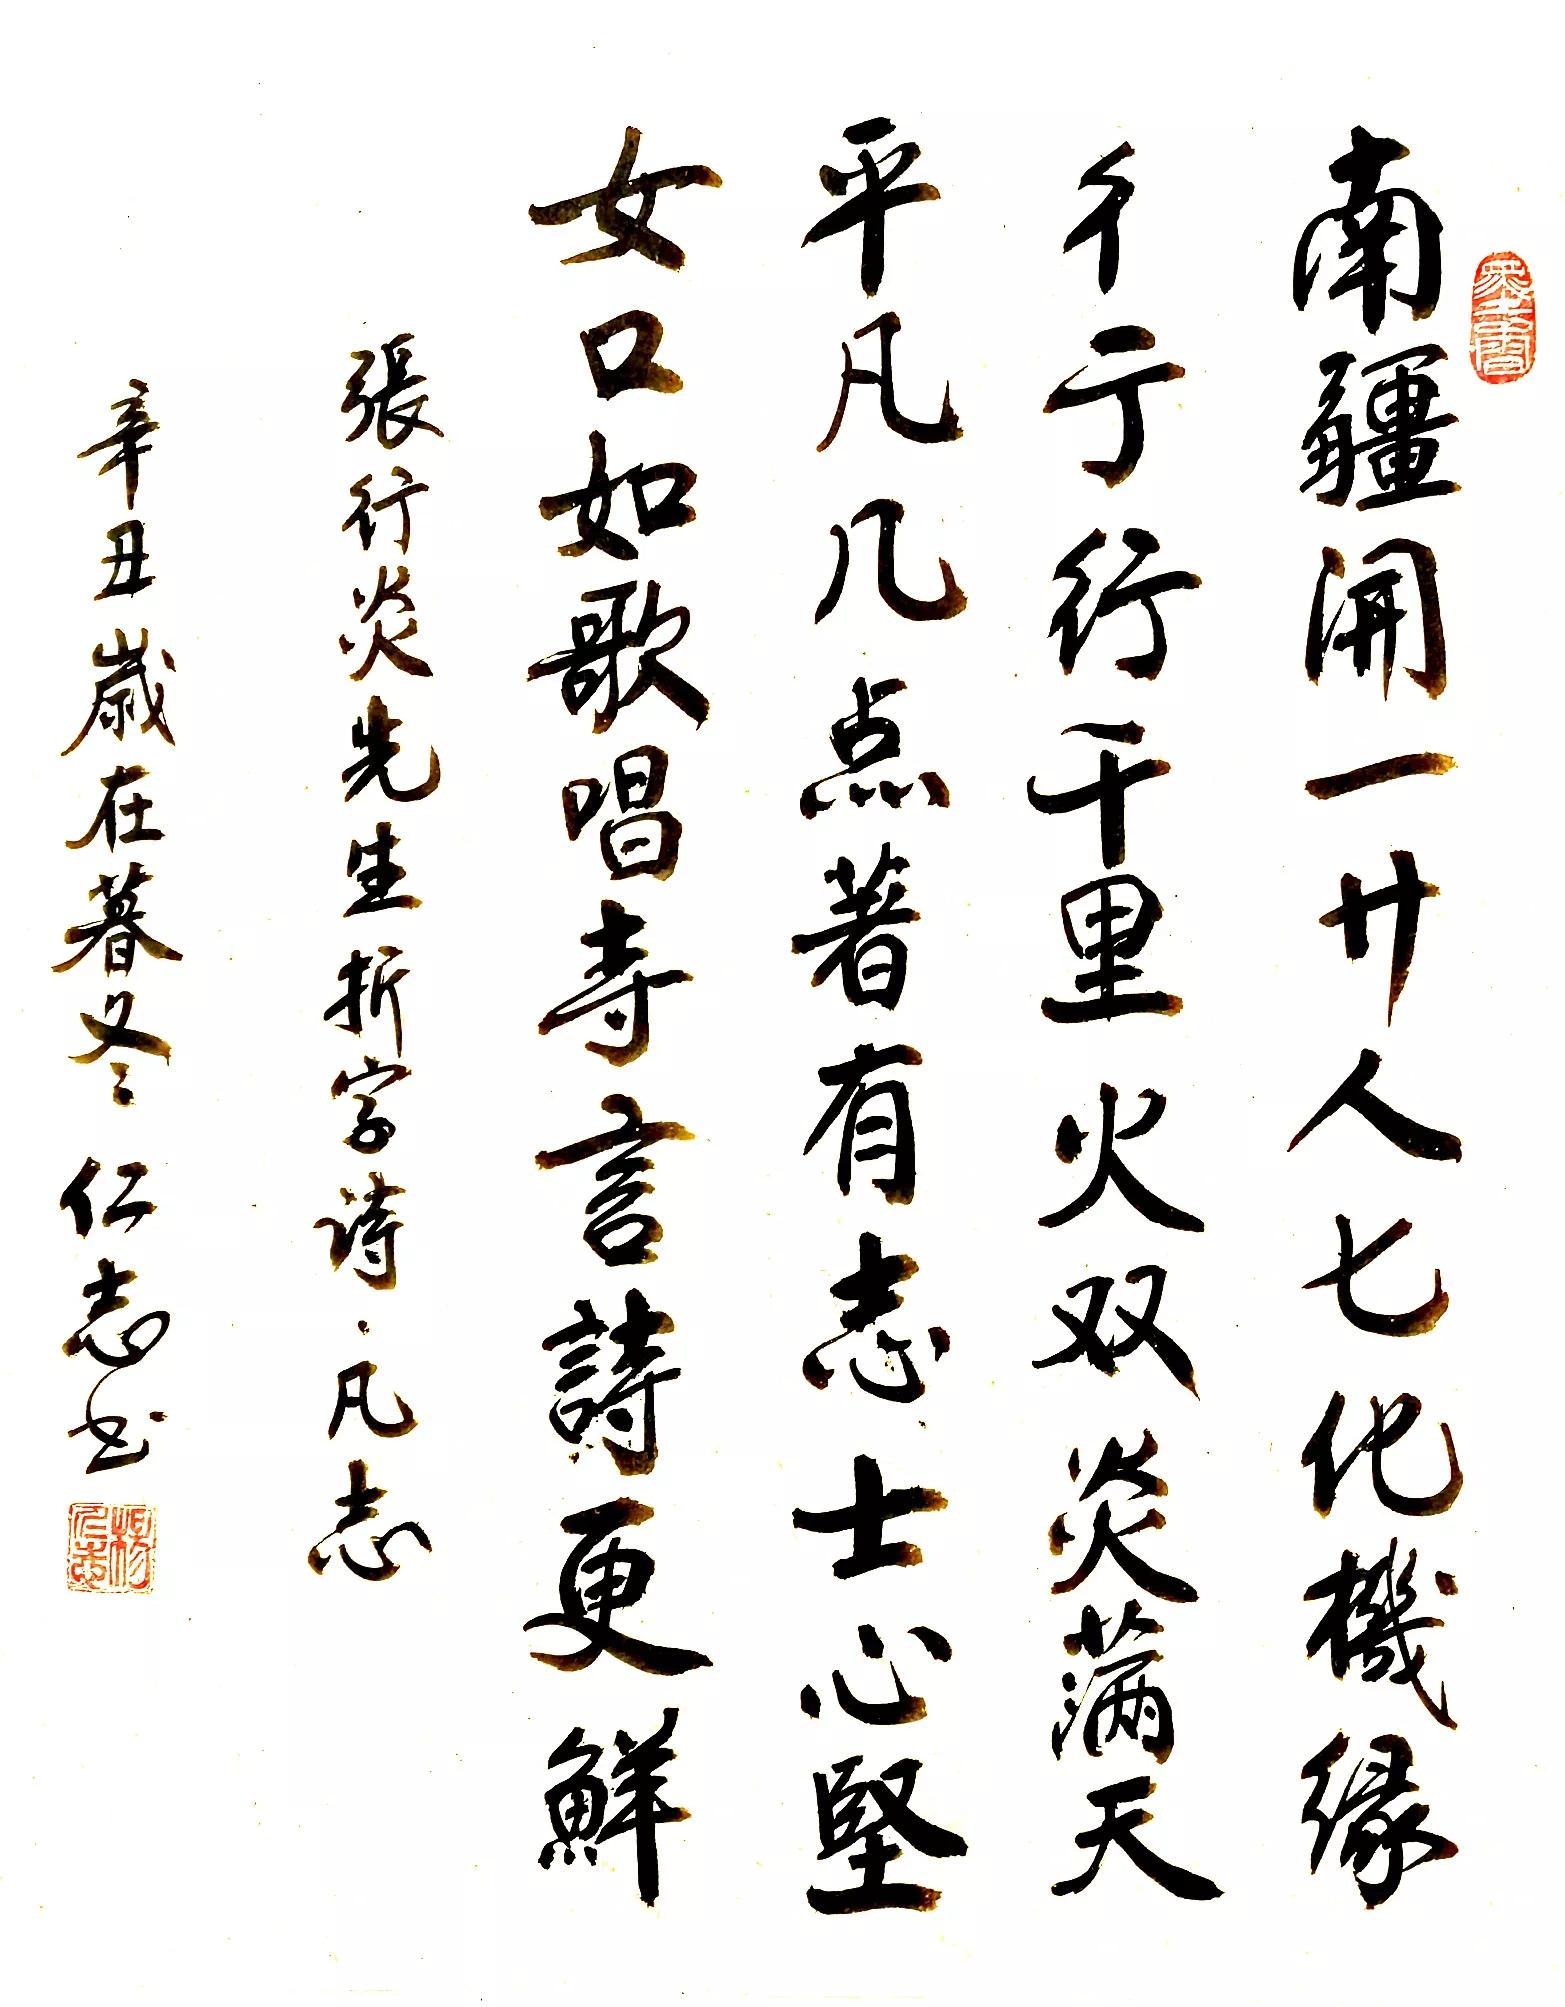 南疆開一廾人七化機缘
彳亍行千里火双炎满天
平凡几点著有志士心堅
女口如歌唱寺言詩更鮮
張行炎先生折字诗·凡志
辛丑歲在暮冬仁志书
楊仁志